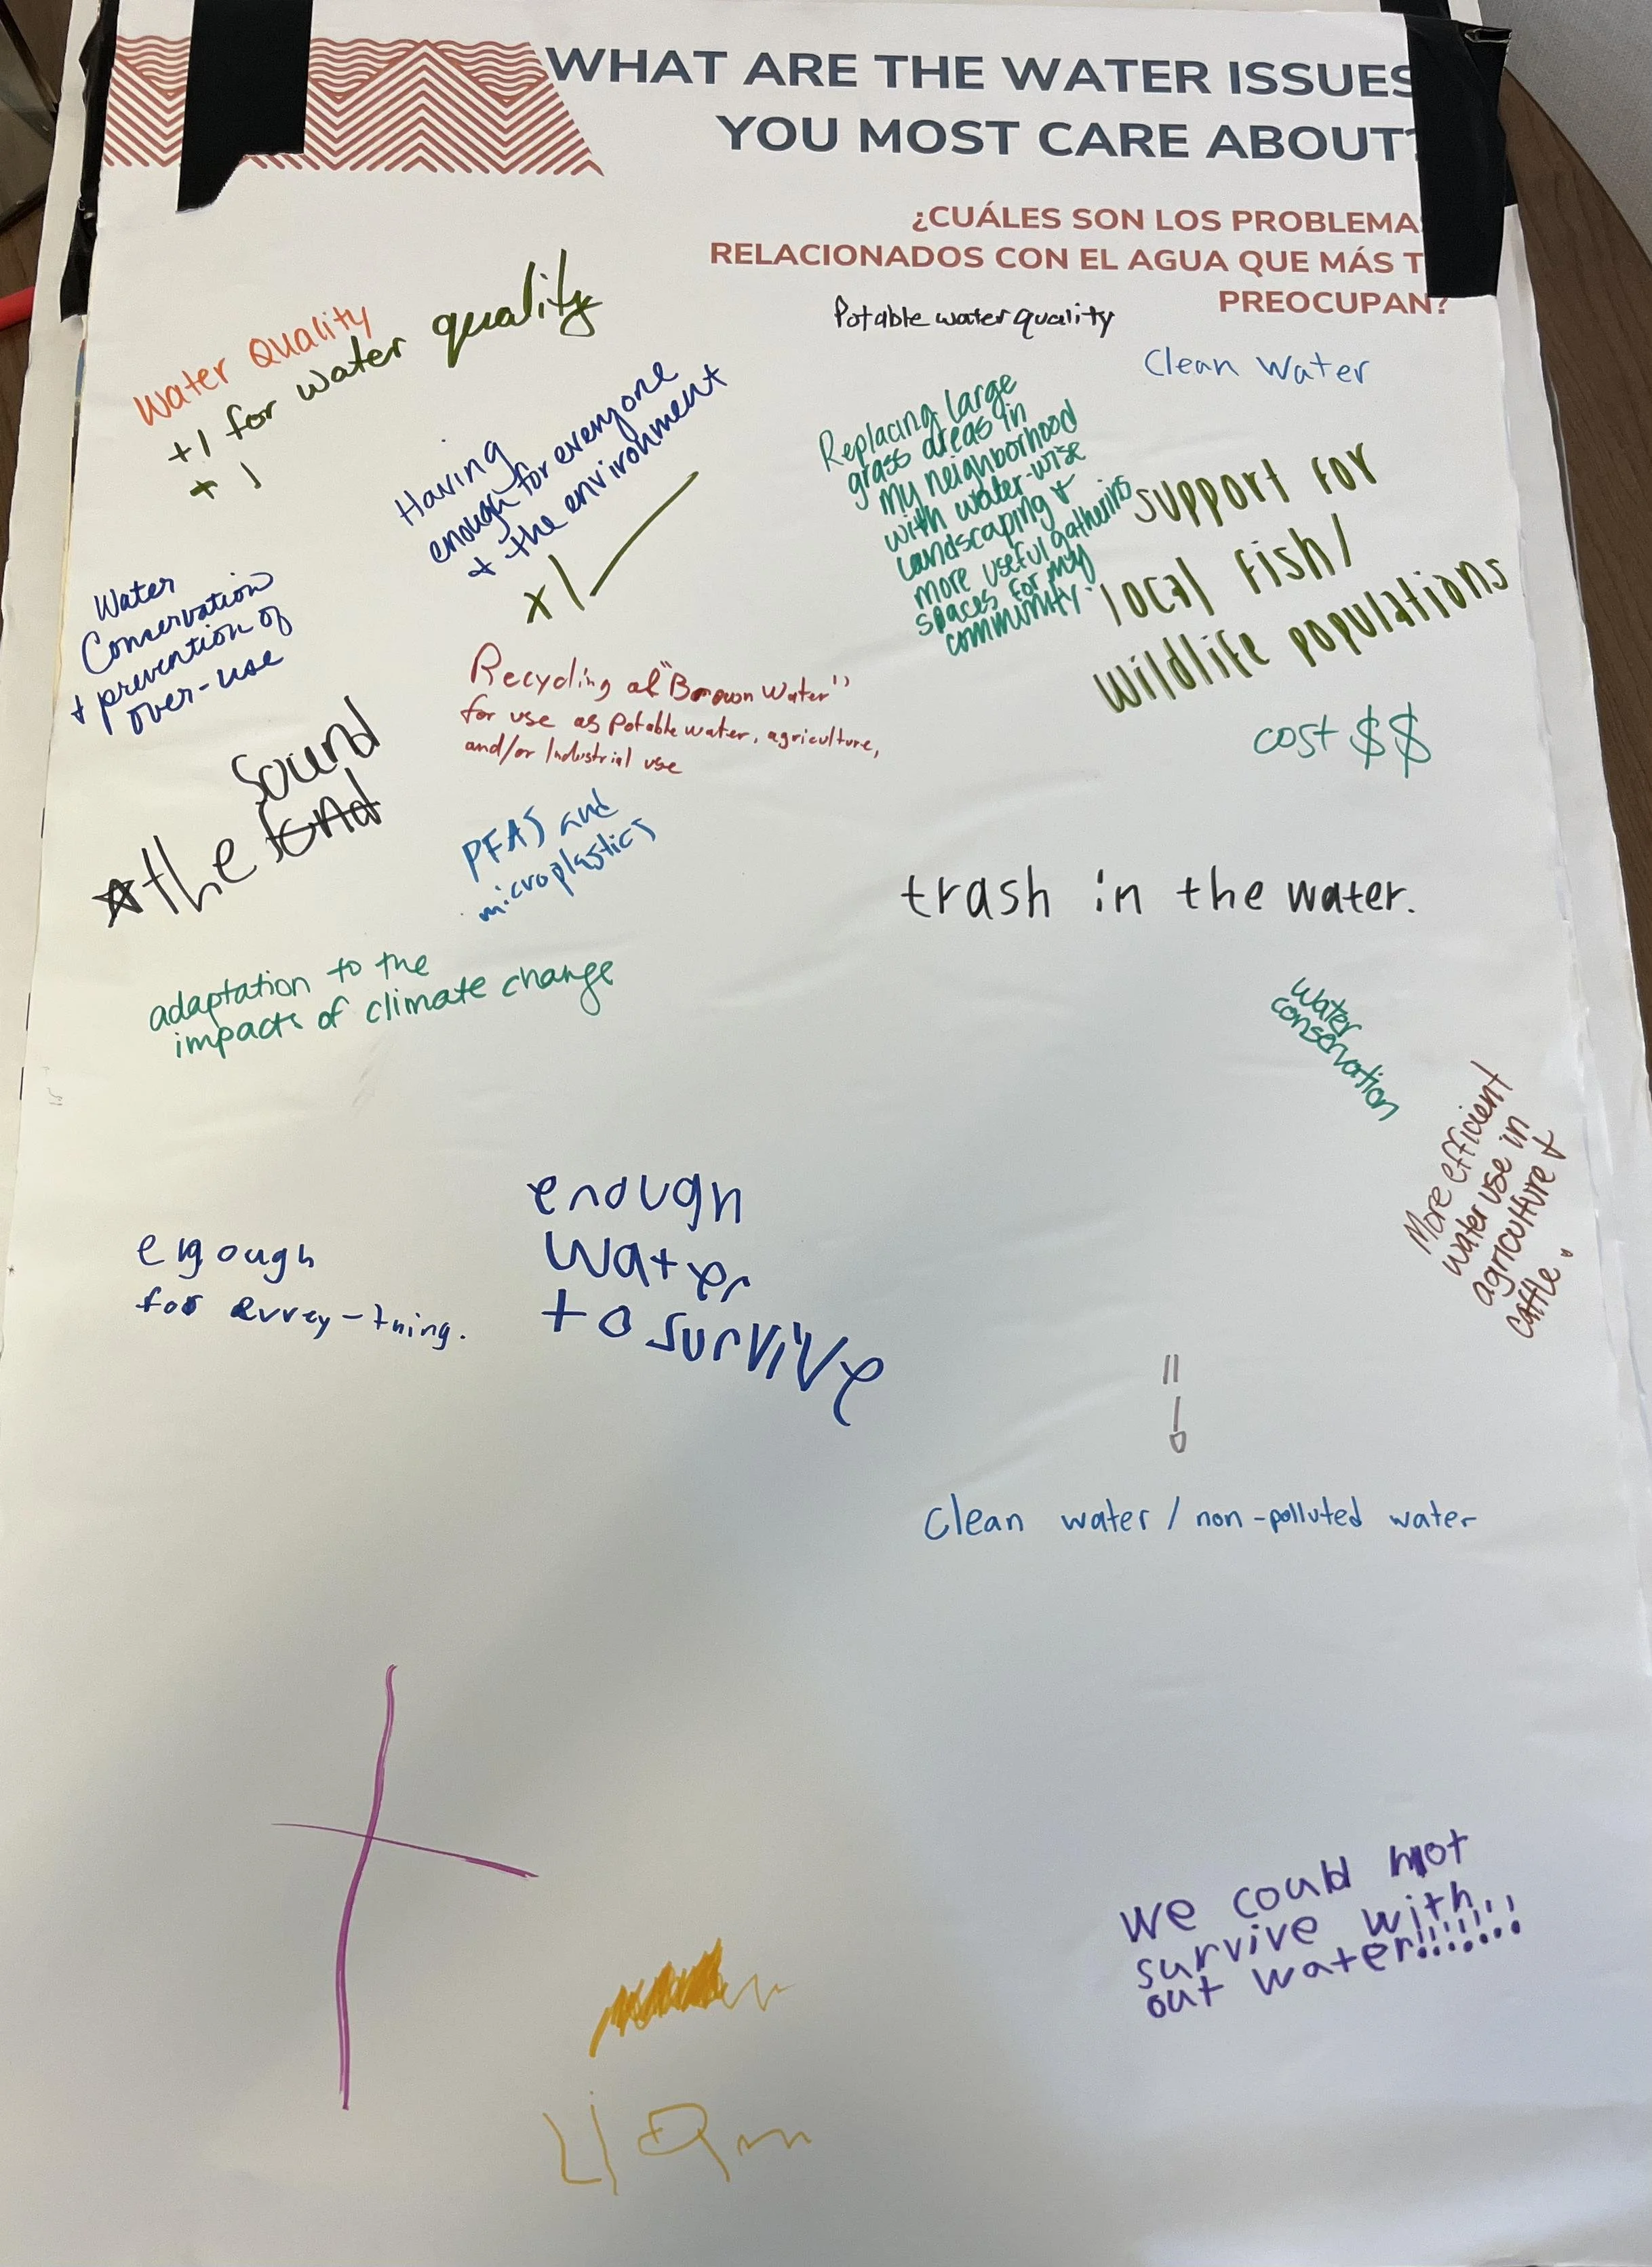 WHAT ARE THE WATER ISSUES
YOU MOST CARE ABOUT?
¿CUÁLES SON LOS PROBLEMAS
RELACIONADOS CON EL AGUA QUE MÁS T
PREOCUPAN?
Water Quality
+1 for water quality
+ 1
Having
enough for everyone
+ the environment
x1
Potable water quality
Clean Water
Replacing large
grass areas in
my neighborhood
with water-wise
landscaping +
more useful gathering
spaces for my
community.
Support for
local fish/
wildlife populations
cost $$
Water
Conservation
+ prevention of
over-use
Recycling of "Brown Water"
for use as potable water, agriculture,
and/or Industrial use
Sound
the
PFAS and
microplastics
trash in the water.
adaptation to the
impacts of climate change
water
conservation
More efficient
water use in
agriculture +
cattle.
enough
water
to survive
engough
for evrey-thing.
clean water / non-polluted water
we could not
survive with
out water!!!!!!!
Liam